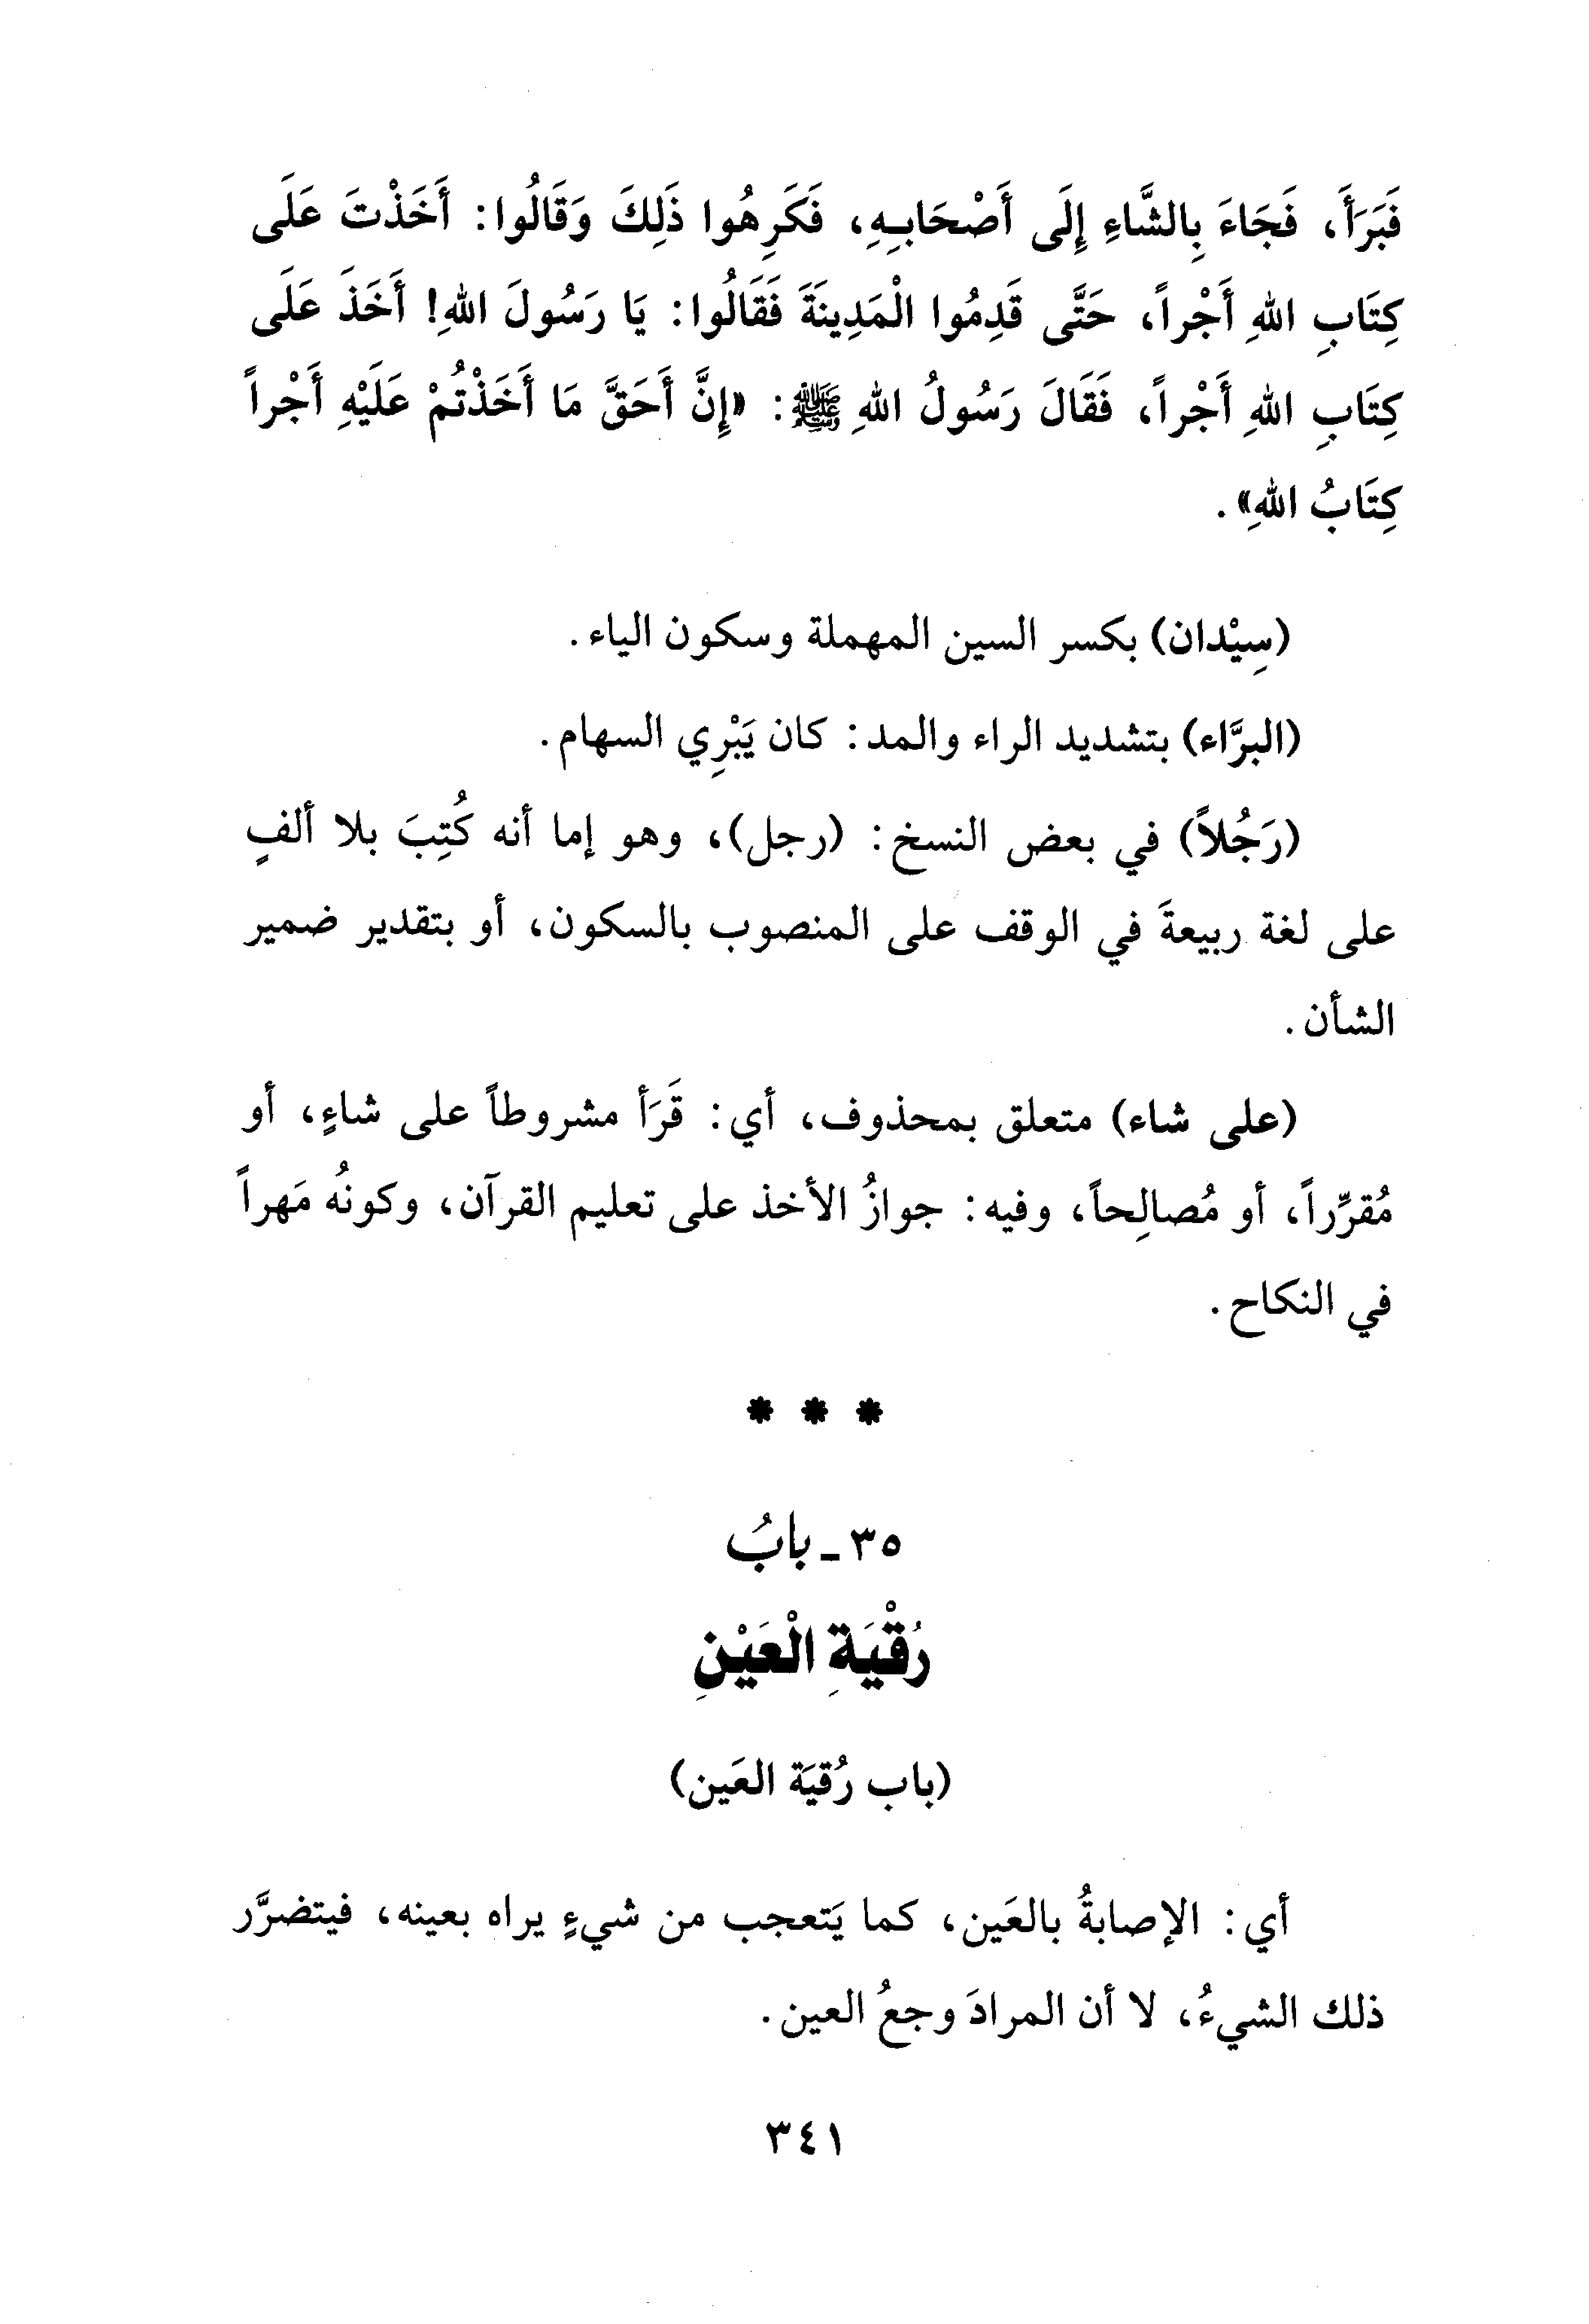 فَبَرَأَ، فَجَاءَ بِالشَّاءِ إِلَى أَصْحَابِهِ، فَكَرِهُوا ذَلِكَ وَقَالُوا: أَخَذْتَ عَلَى
كِتَابِ اللهِ أَجْراً، حَتَّى قَدِمُوا الْمَدِينَةَ فَقَالُوا: يَا رَسُولَ اللهِ! أَخَذَ عَلَى
كِتَابِ اللهِ أَجْراً، فَقَالَ رَسُولُ اللهِ ﷺ: «إِنَّ أَحَقَّ مَا أَخَذْتُمْ عَلَيْهِ أَجْراً
كِتَابُ اللهِ».
(سِيْدان) بكسر السين المهملة وسكون الياء.
(البرَّاء) بتشديد الراء والمد: كان يَبْرِي السهام.
(رَجُلاً) في بعض النسخ: (رجل)، وهو إما أنه كُتِبَ بلا ألفٍ
على لغة ربيعةَ في الوقف على المنصوب بالسكون، أو بتقدير ضمير
الشأن.
(على شاء) متعلق بمحذوف، أي: قَرَأ مشروطاً على شاءٍ، أو
مُقرِّراً، أو مُصالِحاً، وفيه: جوازُ الأخذ على تعليم القرآن، وكونُه مَهراً
في النكاح.
* * *
٣٥ - بابُ
رُقْيَةِ الْعَيْنِ
(باب رُقيَة العَين)
أي: الإصابةُ بالعَين، كما يَتعجب من شيءٍ يراه بعينه، فيتضرَّر
ذلك الشيءُ، لا أن المرادَ وجعُ العين.
٣٤١